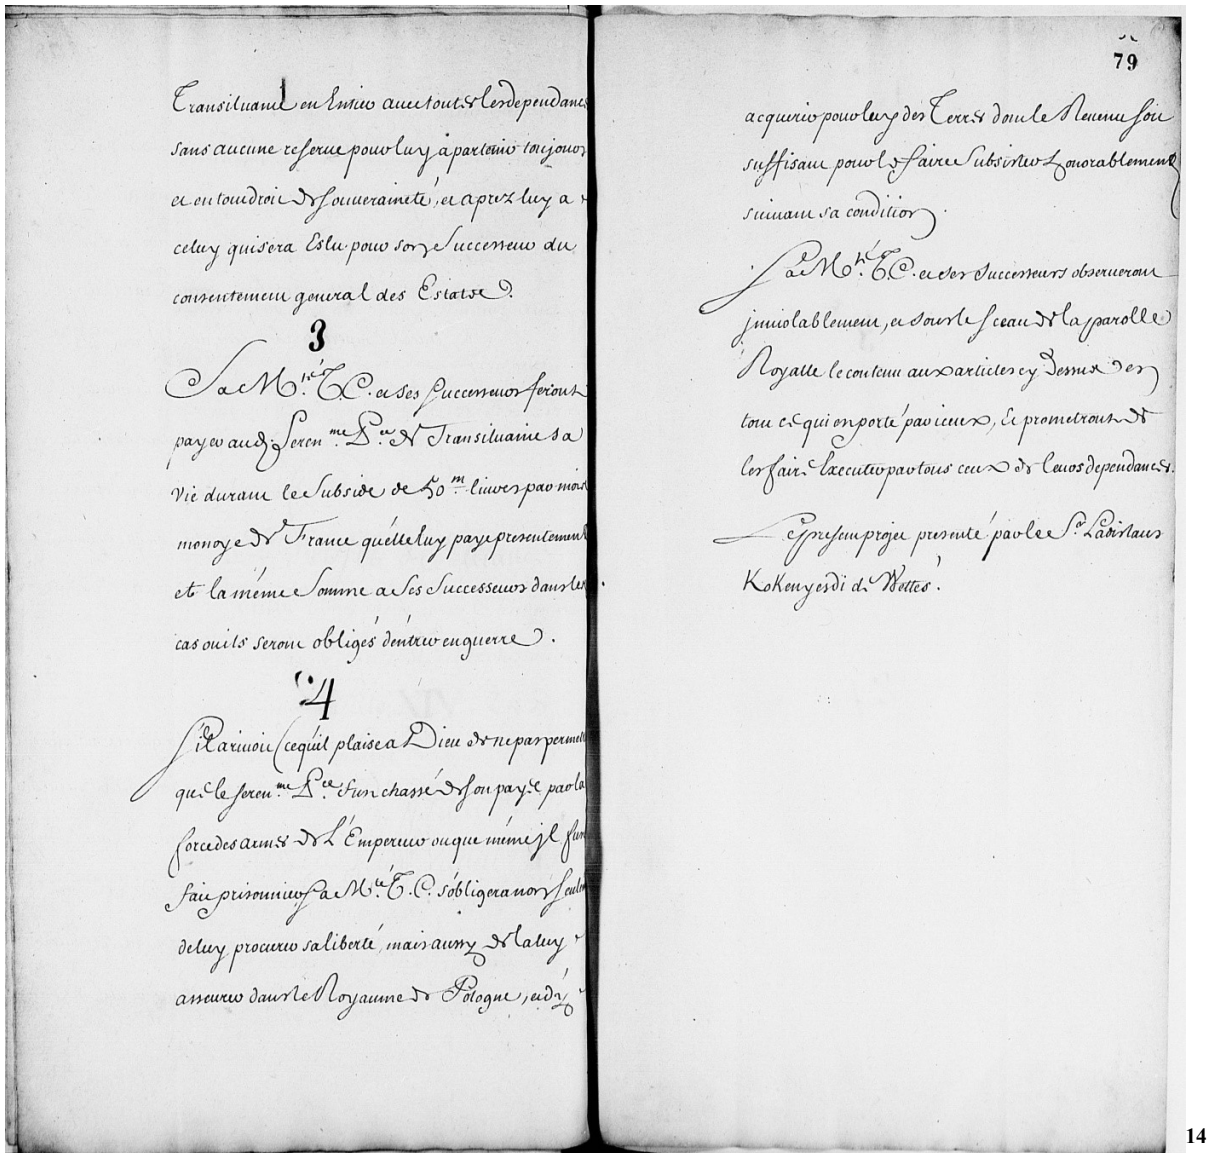 Transiluanie en Entier auec toutes les dependances
sans aucune reserue pour luy apartenir toujours
et en tout droit de souueraineté, et aprez luy a
celuy qui sera Eslu pour son Successeur du
consentement general des Estats.
3
Sa M.té T. C. et ses Successeurs feront
payer aud. Seren.me P.ce de Transiluanie sa
vie durant le Subside de 50.m liures par mois
monoye de France qu'elle luy paye presentement
et la méme Somme a Ses Successeurs dans les
cas ou ils seront obligés d'entrer en guerre.
4
S'il arriuoit (ce qu'il plaise a Dieu de ne pas permettre
que le seren.me P.ce fut chassé de son paÿs par la
force des armes de L'Empereur ou que méme jl fut
fait prisonnier Sa M.té T. C. s'obligera non seulem
de luy procurer sa liberté, mais aussy de la luy
asseurer dans le Royaume de Pologne, et d'y
79
acquerir pour luy des Terres dont le Reuenu soit
suffisant pour le faire Subsister honorablement
suiuant sa condition.
Sa M.té T. C. et ses Successeurs obserueront
jnuiolablement, et sous le sceau de la parolle
Royalle le contenu aux articles cy dessus et
tout ce qui est porté par iceux, Et prometront de
les faire Executer par tous ceux de leurs dependances.
Le present projet presenté par le S.r Ladislaus
KoKenyesdi de Vettes.
14